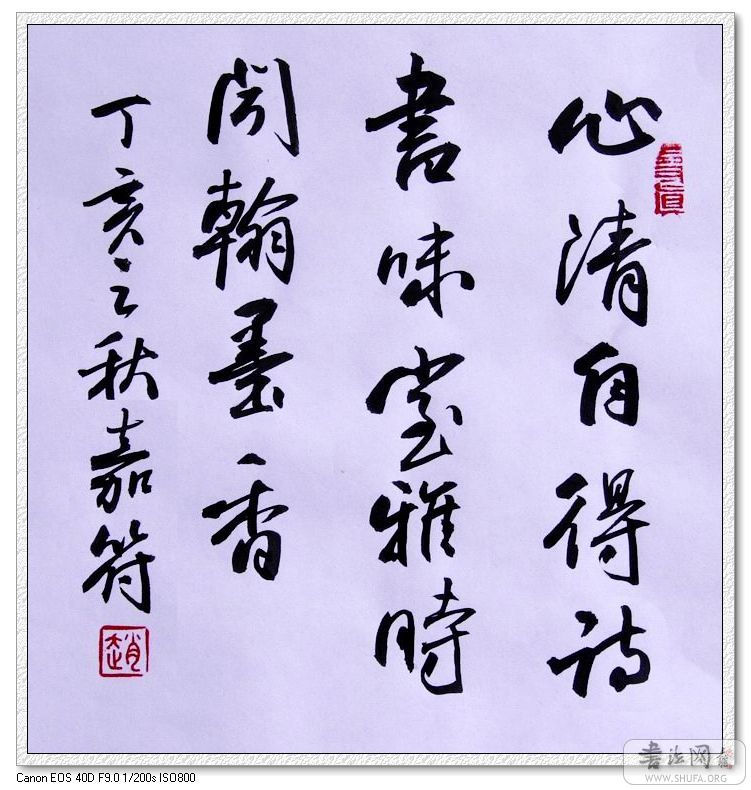 心清自得诗
書味室雅時
闻翰墨香
丁亥之秋嘉符
趙
Canon EOS 40D F9.0 1/200s ISO800
書法网
WWW.SHUFA.ORG